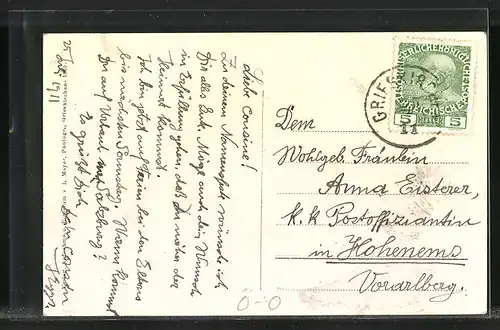 25.
Juli
1911
Liebe Cousine!
Zu Deinem Namensfeste wünsche ich
Dir alles Gute. Möge auch dein Wunsch
in Erfüllung gehen, daß Du näher der
Heimat kommst.
Ich bin jetzt auf Ferien bei den Eltern
bis nächsten Sonntag. Wann kommst
Du auf Urlaub nach Salzburg?
Es grüßt Dich
dein Cousin
GRIES
5 HELLER 5
Dem
Wohlgeb. Fräulein
Anna Eisterer,
k. k. Postoffiziantin
in Hohenems
Vorarlberg.
0-0